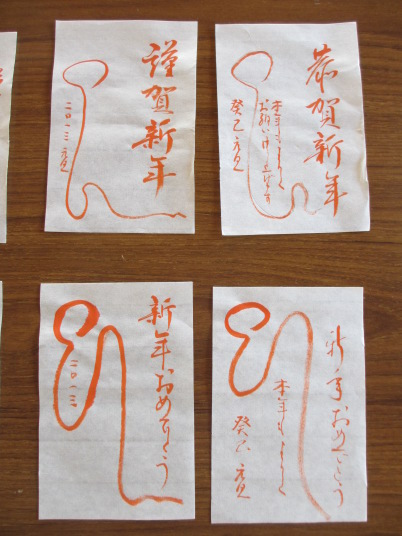 謹賀新年
二〇一三元旦
恭賀新年
本年もよろしく
お願い申し上げます
癸巳元旦
新年おめでとう
二〇一三
新年おめでとう
本年もよろしく
癸巳元旦